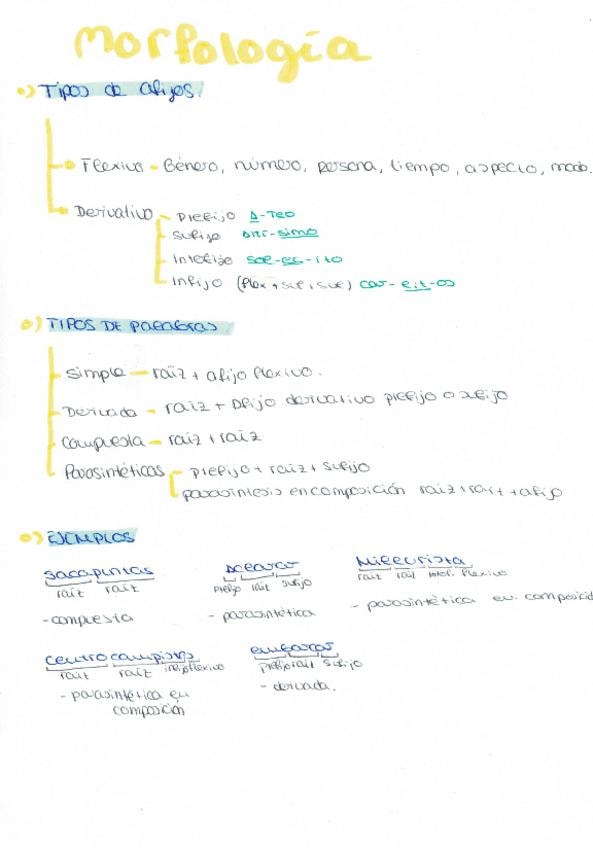 Morfología
Tipos de afijos:
Flexivo - Género, número, persona, tiempo, aspecto, modo.
Derivativo - Prefijo A-Teo
Sufijo -simo
Interfijo -es-ito
Infijo (flex + suf, suf) -cit-os
TIPOS DE PALABRAS
Simple - raíz + afijo flexivo.
Derivada - raíz + afijo derivativo prefijo o sufijo
Compuesta - raíz + raíz
Parasintéticas - prefijo + raíz + sufijo
parasíntesis en composición raíz + raíz + afijo
EJEMPLOS
sacapuntas Mileurista
raíz raíz prefijo raíz sufijo raíz raíz interf. flexivo
- compuesta - parasintética - parasintética en composició
centrocampistas
raíz raíz infijo flexivo prefijo raíz sufijo
- parasintética en - derivada.
composición